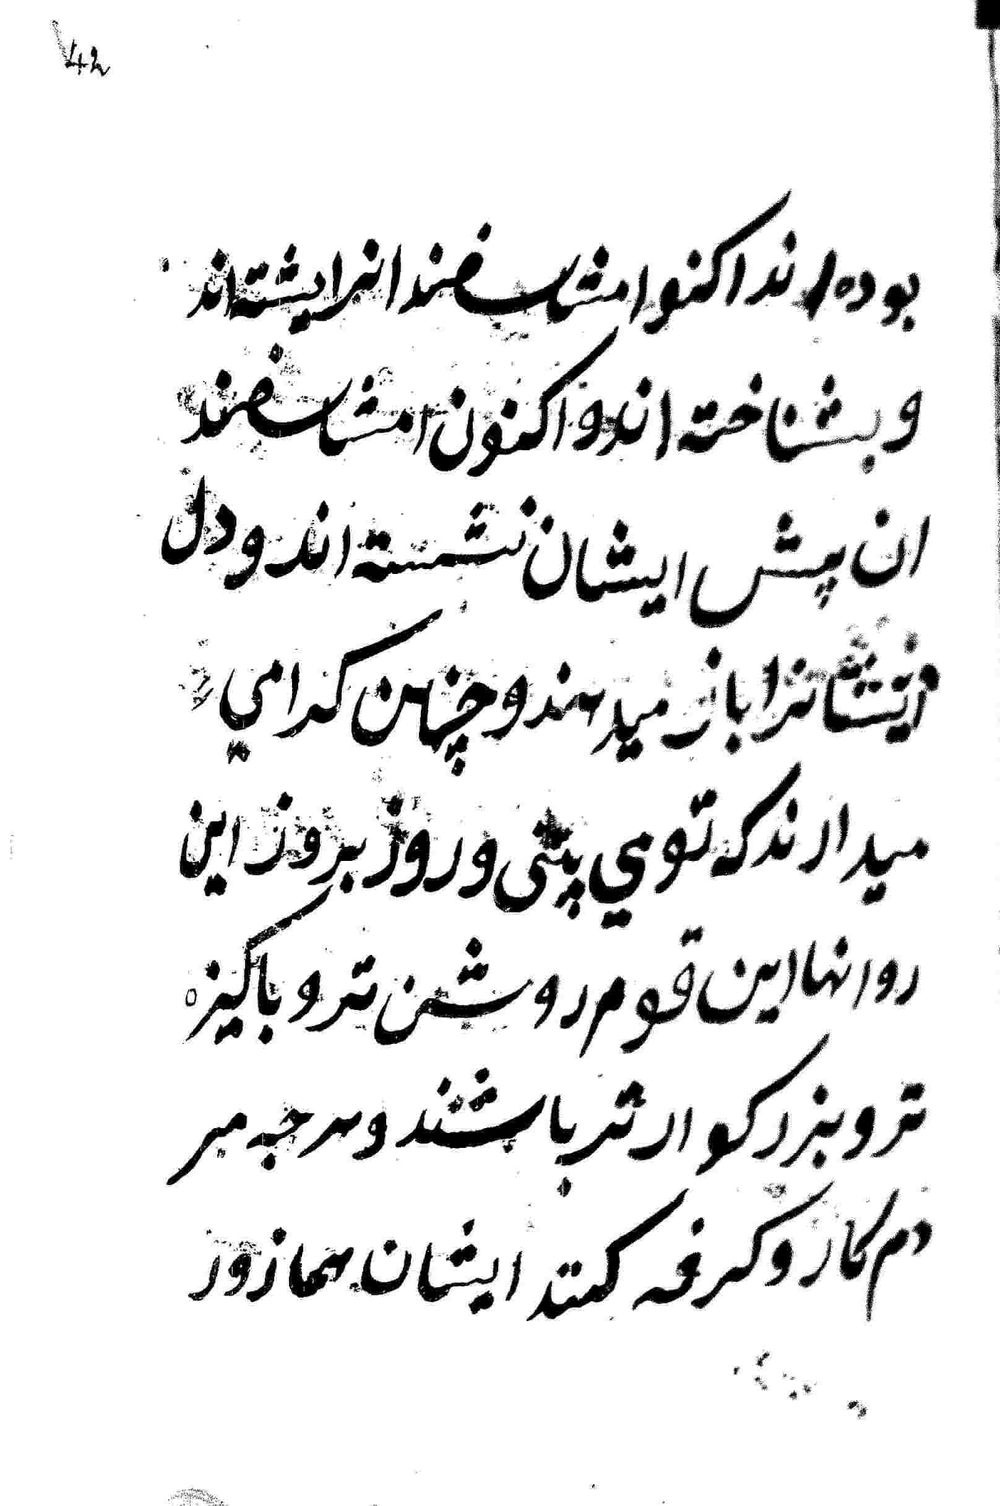 42
بوده اند اکنو امشاسفند انرا یشته اند
و بشناخته اند و اکنون امشاسفند
ان پیش ایشان نشسته اند و دل
ایشانرا باز میدهند و چنین کرامي
میدارند که تو مي بینی و روز بروز این
روانها این قوم روشن تر و باکیزه
تر و بزرکوار تر باشند و هرجه مر
دم کار و کرفه کنند ایشان هما زور